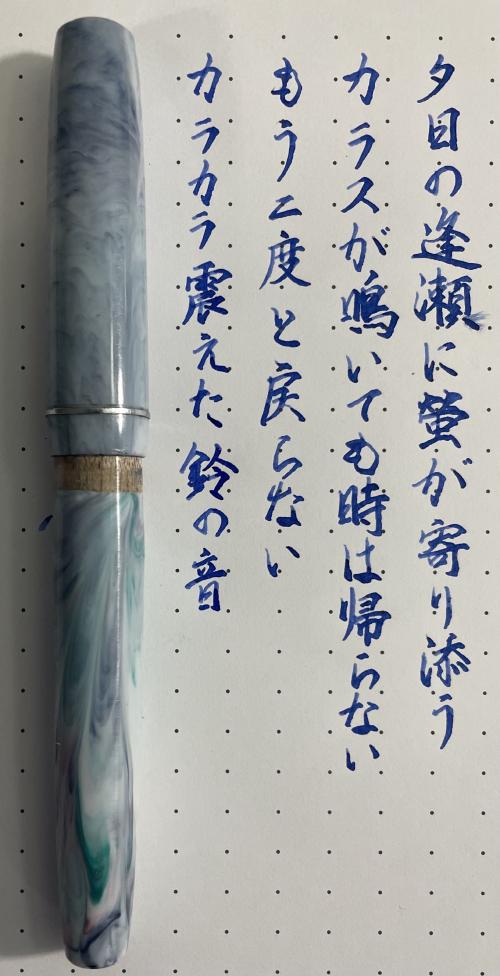 夕日の逢瀬に螢が寄り添う
カラスが鳴いても時は帰らない
もう二度と戻らない
カラカラ震えた鈴の音